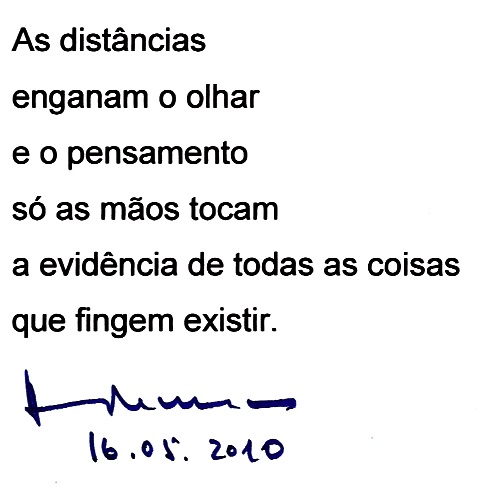 As distâncias
enganam o olhar
e o pensamento
só as mãos tocam
a evidência de todas as coisas
que fingem existir.
16.05.2010